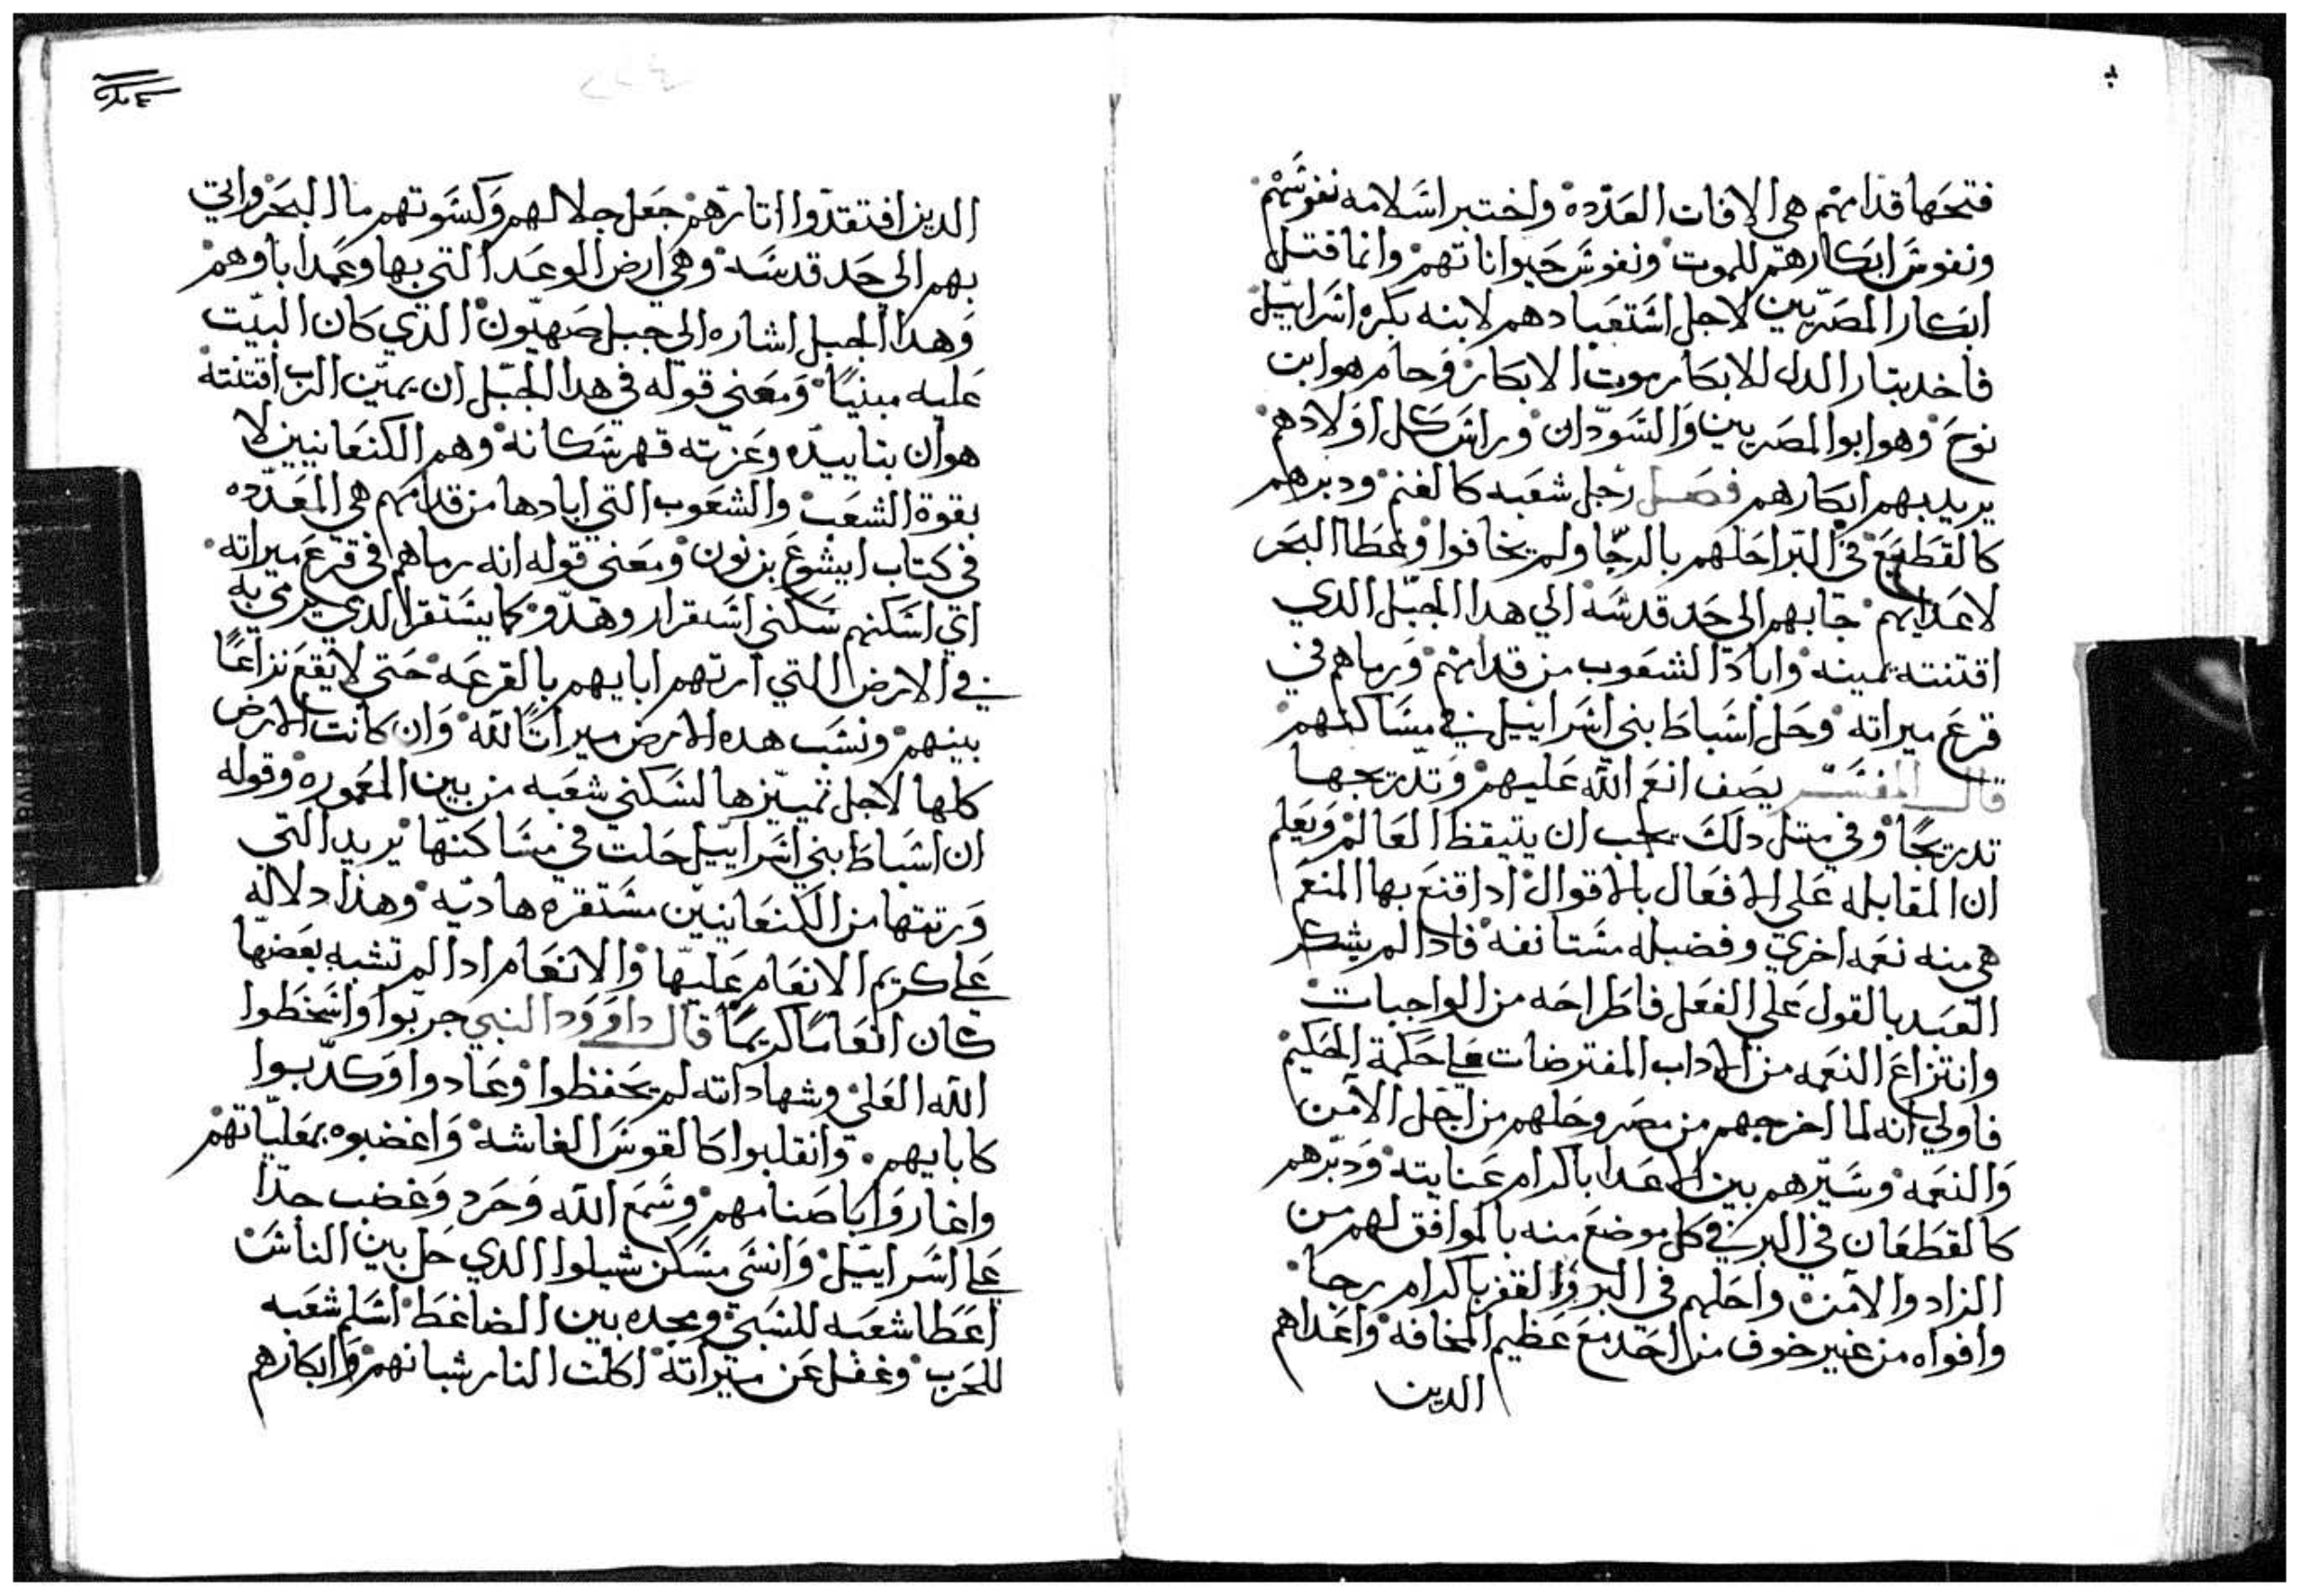 فتحها قدامهم هي الافات العدده واختبر اسلامه نفوسهم
ونفوس ابكارهم للموت ونفوس حيواناتهم وانما قتل
ابكار المصريين لاجل استعبادهم لابنه بكره اسراييل
فاخد بتار الدل للابكار بموت الابكار وحام هو ابن
نوح وهو ابو المصريين والسودان وراس كل اولادهم
يريد بهم ابكارهم فصل رحل شعبه كالغنم ودبرهم
كالقطيع في البر احلهم بالرجا ولم يخافوا وغطا البحر
لاعدايهم جابهم الى حد قدسه الي هدا الجبل الدي
اقتنته يمينه واباد الشعوب من قدامهم ورماهم في
قرع ميراته وحل اسباط بني اسراييل في مساكنهم
قال المفسر يصف انعم الله عليهم وتدريجها
تدريجًا وفي متل دلك يجب ان يتيقظ العالم ويعلم
ان المقابله على الافعال بالاقوال ادا قنع بها المنعم
هي منه نعمه اخري وفضيله مستانفه فادا لم يشكر
العبد بالقول على الفعل فاطراحه من الواجبات
وانتزاع النعمه من الاداب المفترضات على حكمة الحكيم
فاولي انه لما اخرجهم من مصر وحلهم من اجل الامن
والنعمه وسيرهم بين الاعدا باكرام عنايته ودبرهم
كالقطعان في البر في كل موضع منه بالموافق لهم من
الزاد والامن واحلهم في البر والقفر باكرام رجا
وافواه من غير خوف من احد مع عظيم المخافه واعداهم
الدين
الدين افتقدوا اتارهم جعل جلالهم وكسوتهم ما البحر واتي
بهم الي حد قدسه وهي ارض الوعد التي بها وعد اباوهم
وهدا الجبل اشاره الي جبل صهيون الدي كان البيت
عليه مبنيًا ومعني قوله في هدا الجبل ان يمين الرب اقتنته
هو ان بتاييده وعزته قهر سكانه وهم الكنعانيين لا
بقوة الشعب والشعوب التي ابادها من قدامهم هي المعدده
في كتاب ايشوع بن نون ومعني قوله انه رماهم في قرع ميراته
اي اسكنهم سكني استقرار وهدو كما يستقر الدي يرمي به
في الارض التي ارتهم اباىهم بالقرعه حتي لا يقع نزاعًا
بينهم ونسب هده الارض ميراتًا لله وان كانت الارض
كلها لاجل تمييزها لسكني شعبه من بين المعموره وقوله
ان اسباط بني اسراييل حلت في مساكنها يريد التي
ورتتها من الكنعانيين مستقره هاديه وهدا دلاله
على كريم الانعام عليها والانعام ادا لم تشبه بعضها
كان انعامًا كريمًا قال داوود النبي جربوا واسخطوا
الله العلي وشهاداته لم يحفظوا وعادوا وكدبوا
كابايهم وانقلبوا كالقوس الغاشه واغضبوه بمعلياتهم
واغاروا باصنامهم وسمع الله وحرد وغضب جدًا
على اسراييل وانسي مسكن شيلوا الدي حل بين الناس
اعطا شعبه للسبي ومجده بين الضاغط اسلم شعبه
للحرب وغفل عن ميراته اكلت النار شبانهم وابكارهم